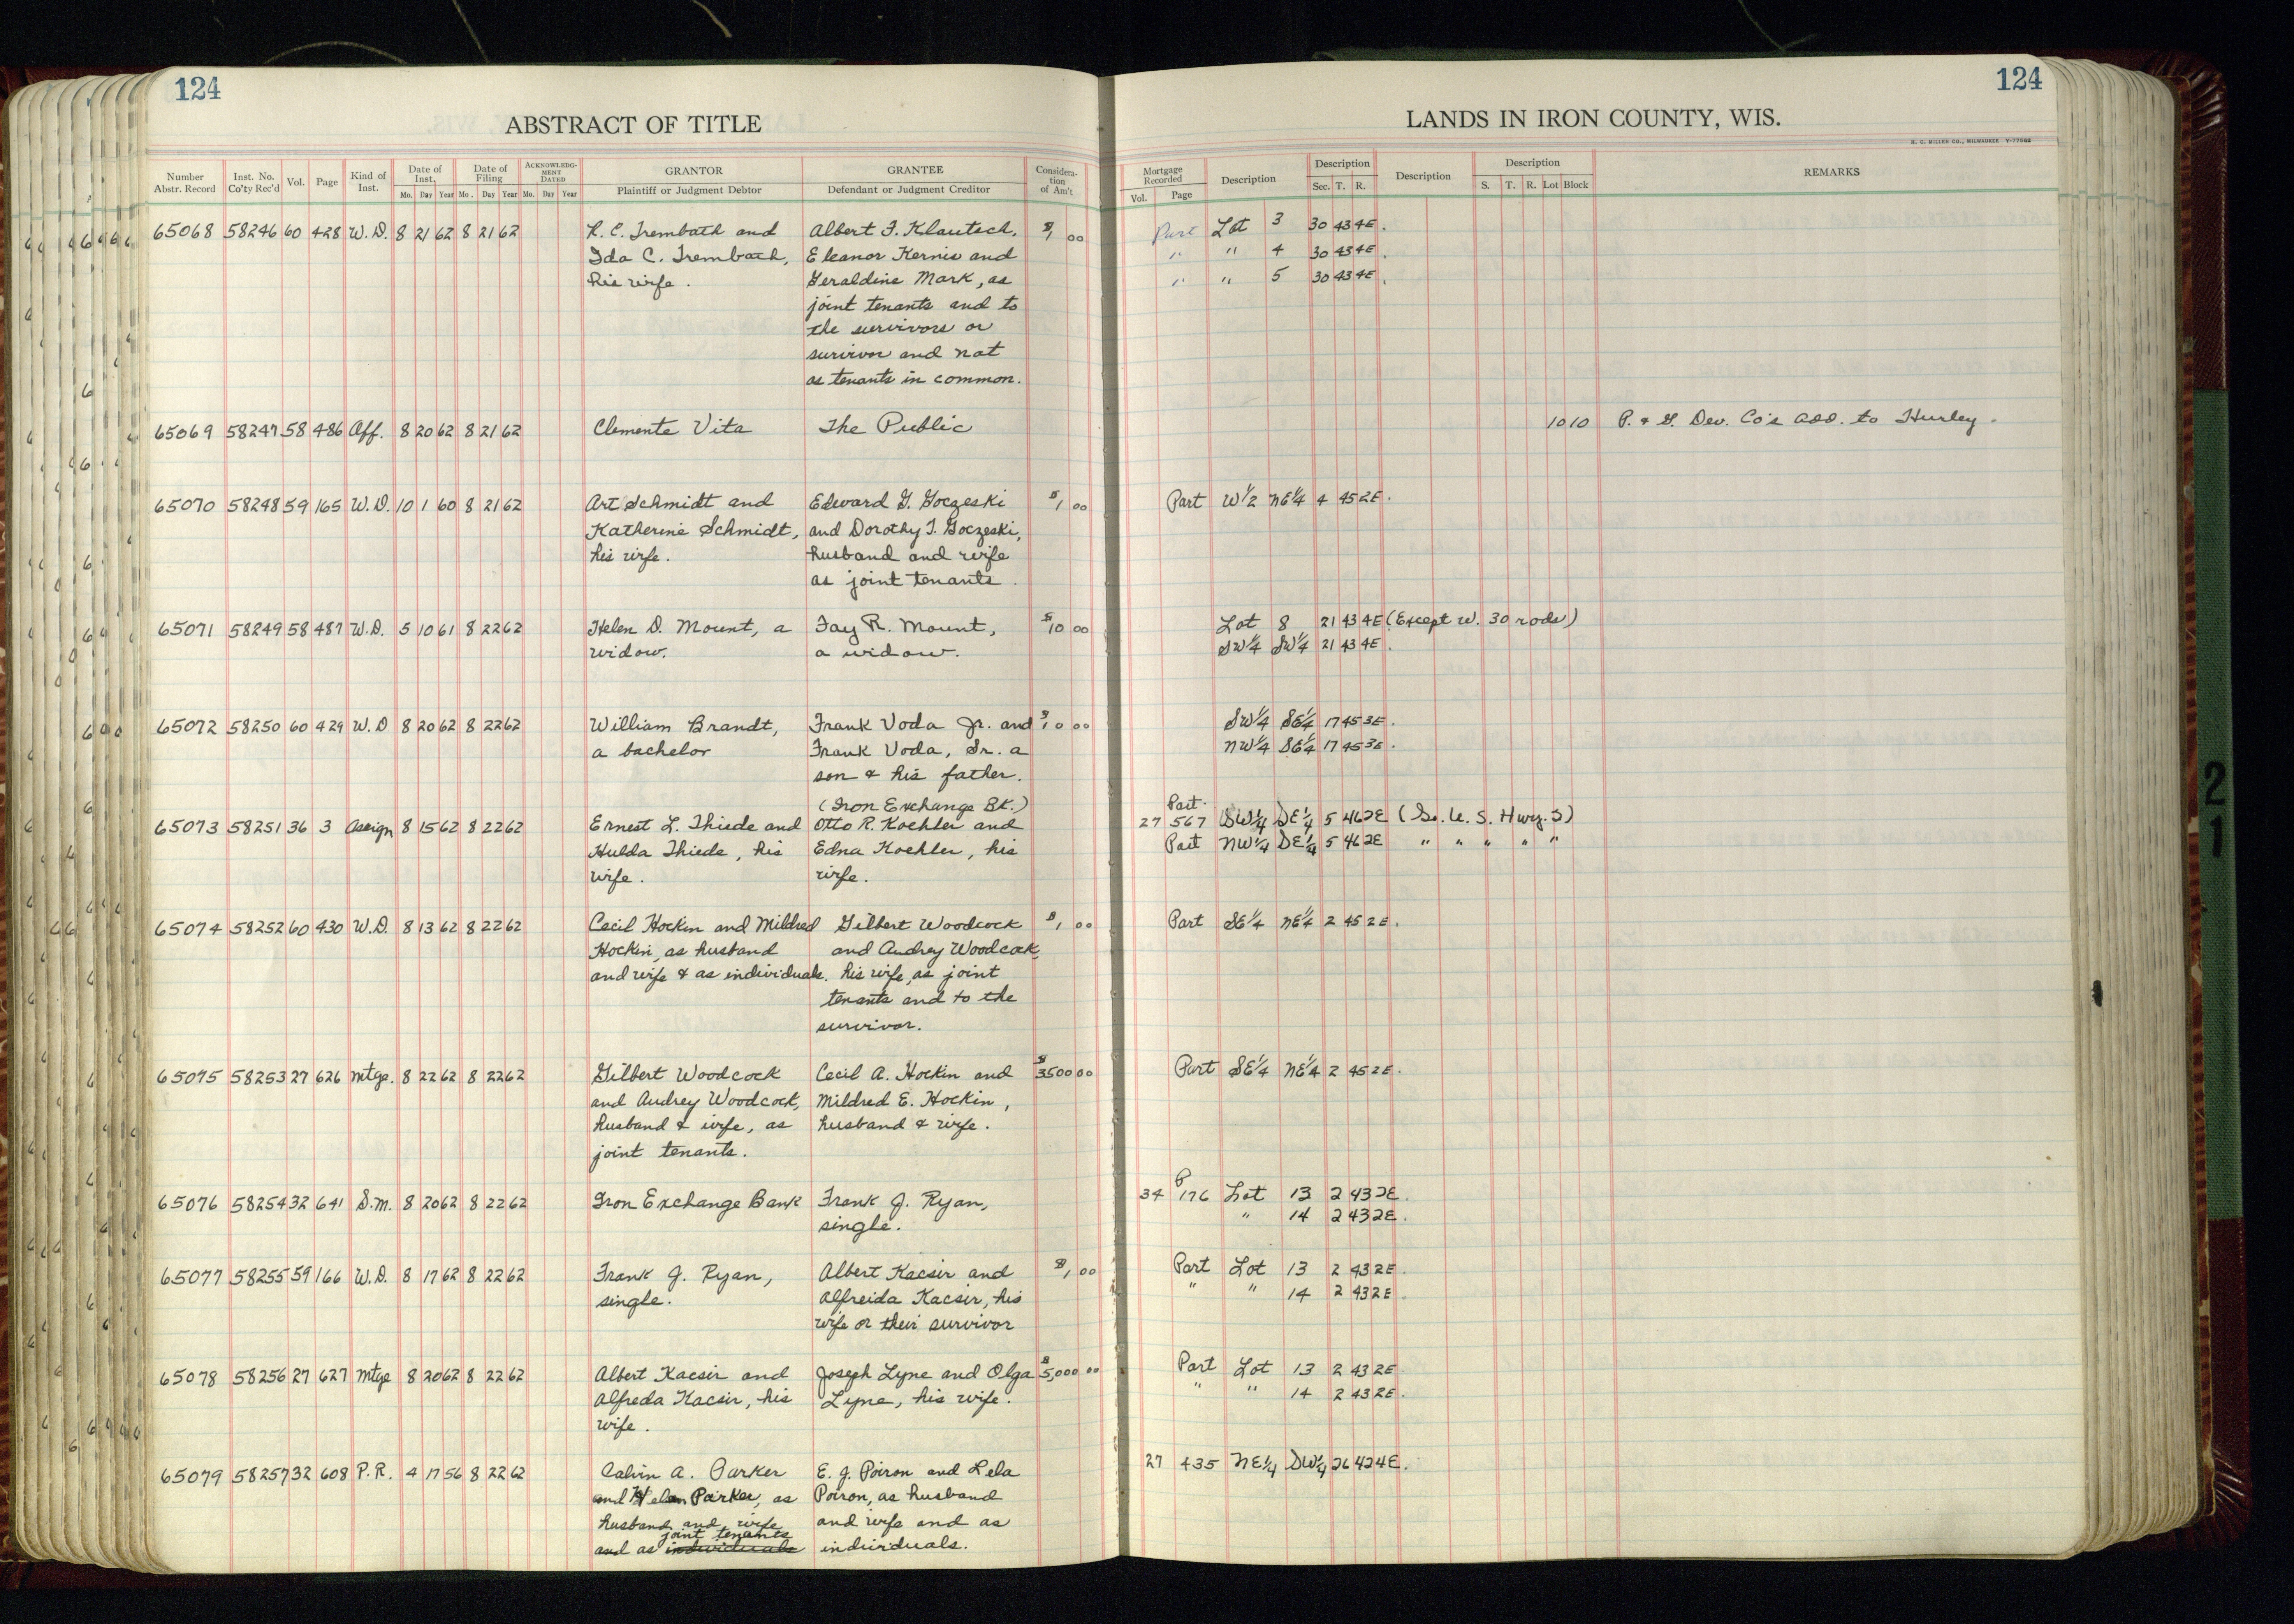 124
ABSTRACT OF TITLE
Number Abstr. Record | Inst. No. Co'ty Rec'd | Vol. | Page | Kind of Inst. | Date of Inst. Mo. Day Year | Date of Filing Mo. Day Year | ACKNOWLEDGMENT DATED Mo. Day Year | GRANTOR Plaintiff or Judgment Debtor | GRANTEE Defendant or Judgment Creditor | Consideration of Am't
65068 58246 60 428 W.D. 8 21 62 8 21 62 R. C. Trembath and Albert F. Klautsch, $1 00
Ida C. Trembath, Eleanor Kernis and
his wife. Geraldine Mark, as
joint tenants and to
the survivors or
survivor and not
as tenants in common.
65069 58247 58 486 Aff. 8 20 62 8 21 62 Clemente Vita The Public
65070 58248 59 165 W.D. 10 1 60 8 21 62 Art Schmidt and Edward G. Goczeski $1 00
Katherine Schmidt, and Dorothy T. Goczeski,
his wife. husband and wife
as joint tenants.
65071 58249 58 487 W.D. 5 10 61 8 22 62 Helen D. Mount, a Fay R. Mount, $10 00
widow. a widow.
65072 58250 60 429 W.D 8 20 62 8 22 62 William Brandt, Frank Voda Jr. and $10 00
a bachelor Frank Voda, Sr. a
son & his father.
(Iron Exchange Bk.)
65073 58251 36 3 Assign 8 15 62 8 22 62 Ernest L. Thiede and Otto R. Koehler and
Hulda Thiede, his Edna Koehler, his
wife. wife.
65074 58252 60 430 W.D. 8 13 62 8 22 62 Cecil Hockin and Mildred Gilbert Woodcock $1 00
Hockin, as husband and Audrey Woodcock,
and wife & as individuals. his wife, as joint
tenants and to the
survivor.
65075 58253 27 626 Mtge. 8 22 62 8 22 62 Gilbert Woodcock Cecil A. Hockin and $3500 00
and Audrey Woodcock, Mildred E. Hockin,
husband & wife, as husband & wife.
joint tenants.
65076 58254 32 641 S.M. 8 20 62 8 22 62 Iron Exchange Bank Frank J. Ryan,
single.
65077 58255 59 166 W.D. 8 17 62 8 22 62 Frank J. Ryan, Albert Kacsir and $1 00
single. Alfreida Kacsir, his
wife or their survivor
65078 58256 27 627 Mtge 8 20 62 8 22 62 Albert Kacsir and Joseph Lyne and Olga $5,000 00
Alfreda Kacsir, his Lyne, his wife.
wife.
65079 58257 32 608 P.R. 4 17 56 8 22 62 Calvin A. Parker E. J. Poiron and Lela
and Helen Parker, as Poiron, as husband
husband and wife and wife and as
joint tenants
and as individuals individuals.
124
LANDS IN IRON COUNTY, WIS.
H. C. MILLER CO., MILWAUKEE
Mortgage Recorded Vol. Page | Description | Description Sec. T. R. | Description | Description S. T. R. Lot Block | REMARKS
Part Lot 3 30 43 4E.
" " 4 30 43 4E.
" " 5 30 43 4E.
10 10 P. & G. Dev. Co's Add. to Hurley.
Part W 1/2 NE 1/4 4 45 2E.
Lot 8 21 43 4E (Except W. 30 rods)
SW 1/4 SW 1/4 21 43 4E.
SW 1/4 SE 1/4 17 45 3E.
NW 1/4 SE 1/4 17 45 3E.
Part
27 567 SW 1/4 SE 1/4 5 46 2E (So. U. S. Hwy. 2)
Part NW 1/4 SE 1/4 5 46 2E " " " " "
Part SE 1/4 NE 1/4 2 45 2E.
Part SE 1/4 NE 1/4 2 45 2E.
P
34 176 Lot 13 2 43 2E.
" 14 2 43 2E.
Part Lot 13 2 43 2E.
" " 14 2 43 2E.
Part Lot 13 2 43 2E.
" " 14 2 43 2E.
27 435 NE 1/4 SW 1/4 26 42 4E.
21